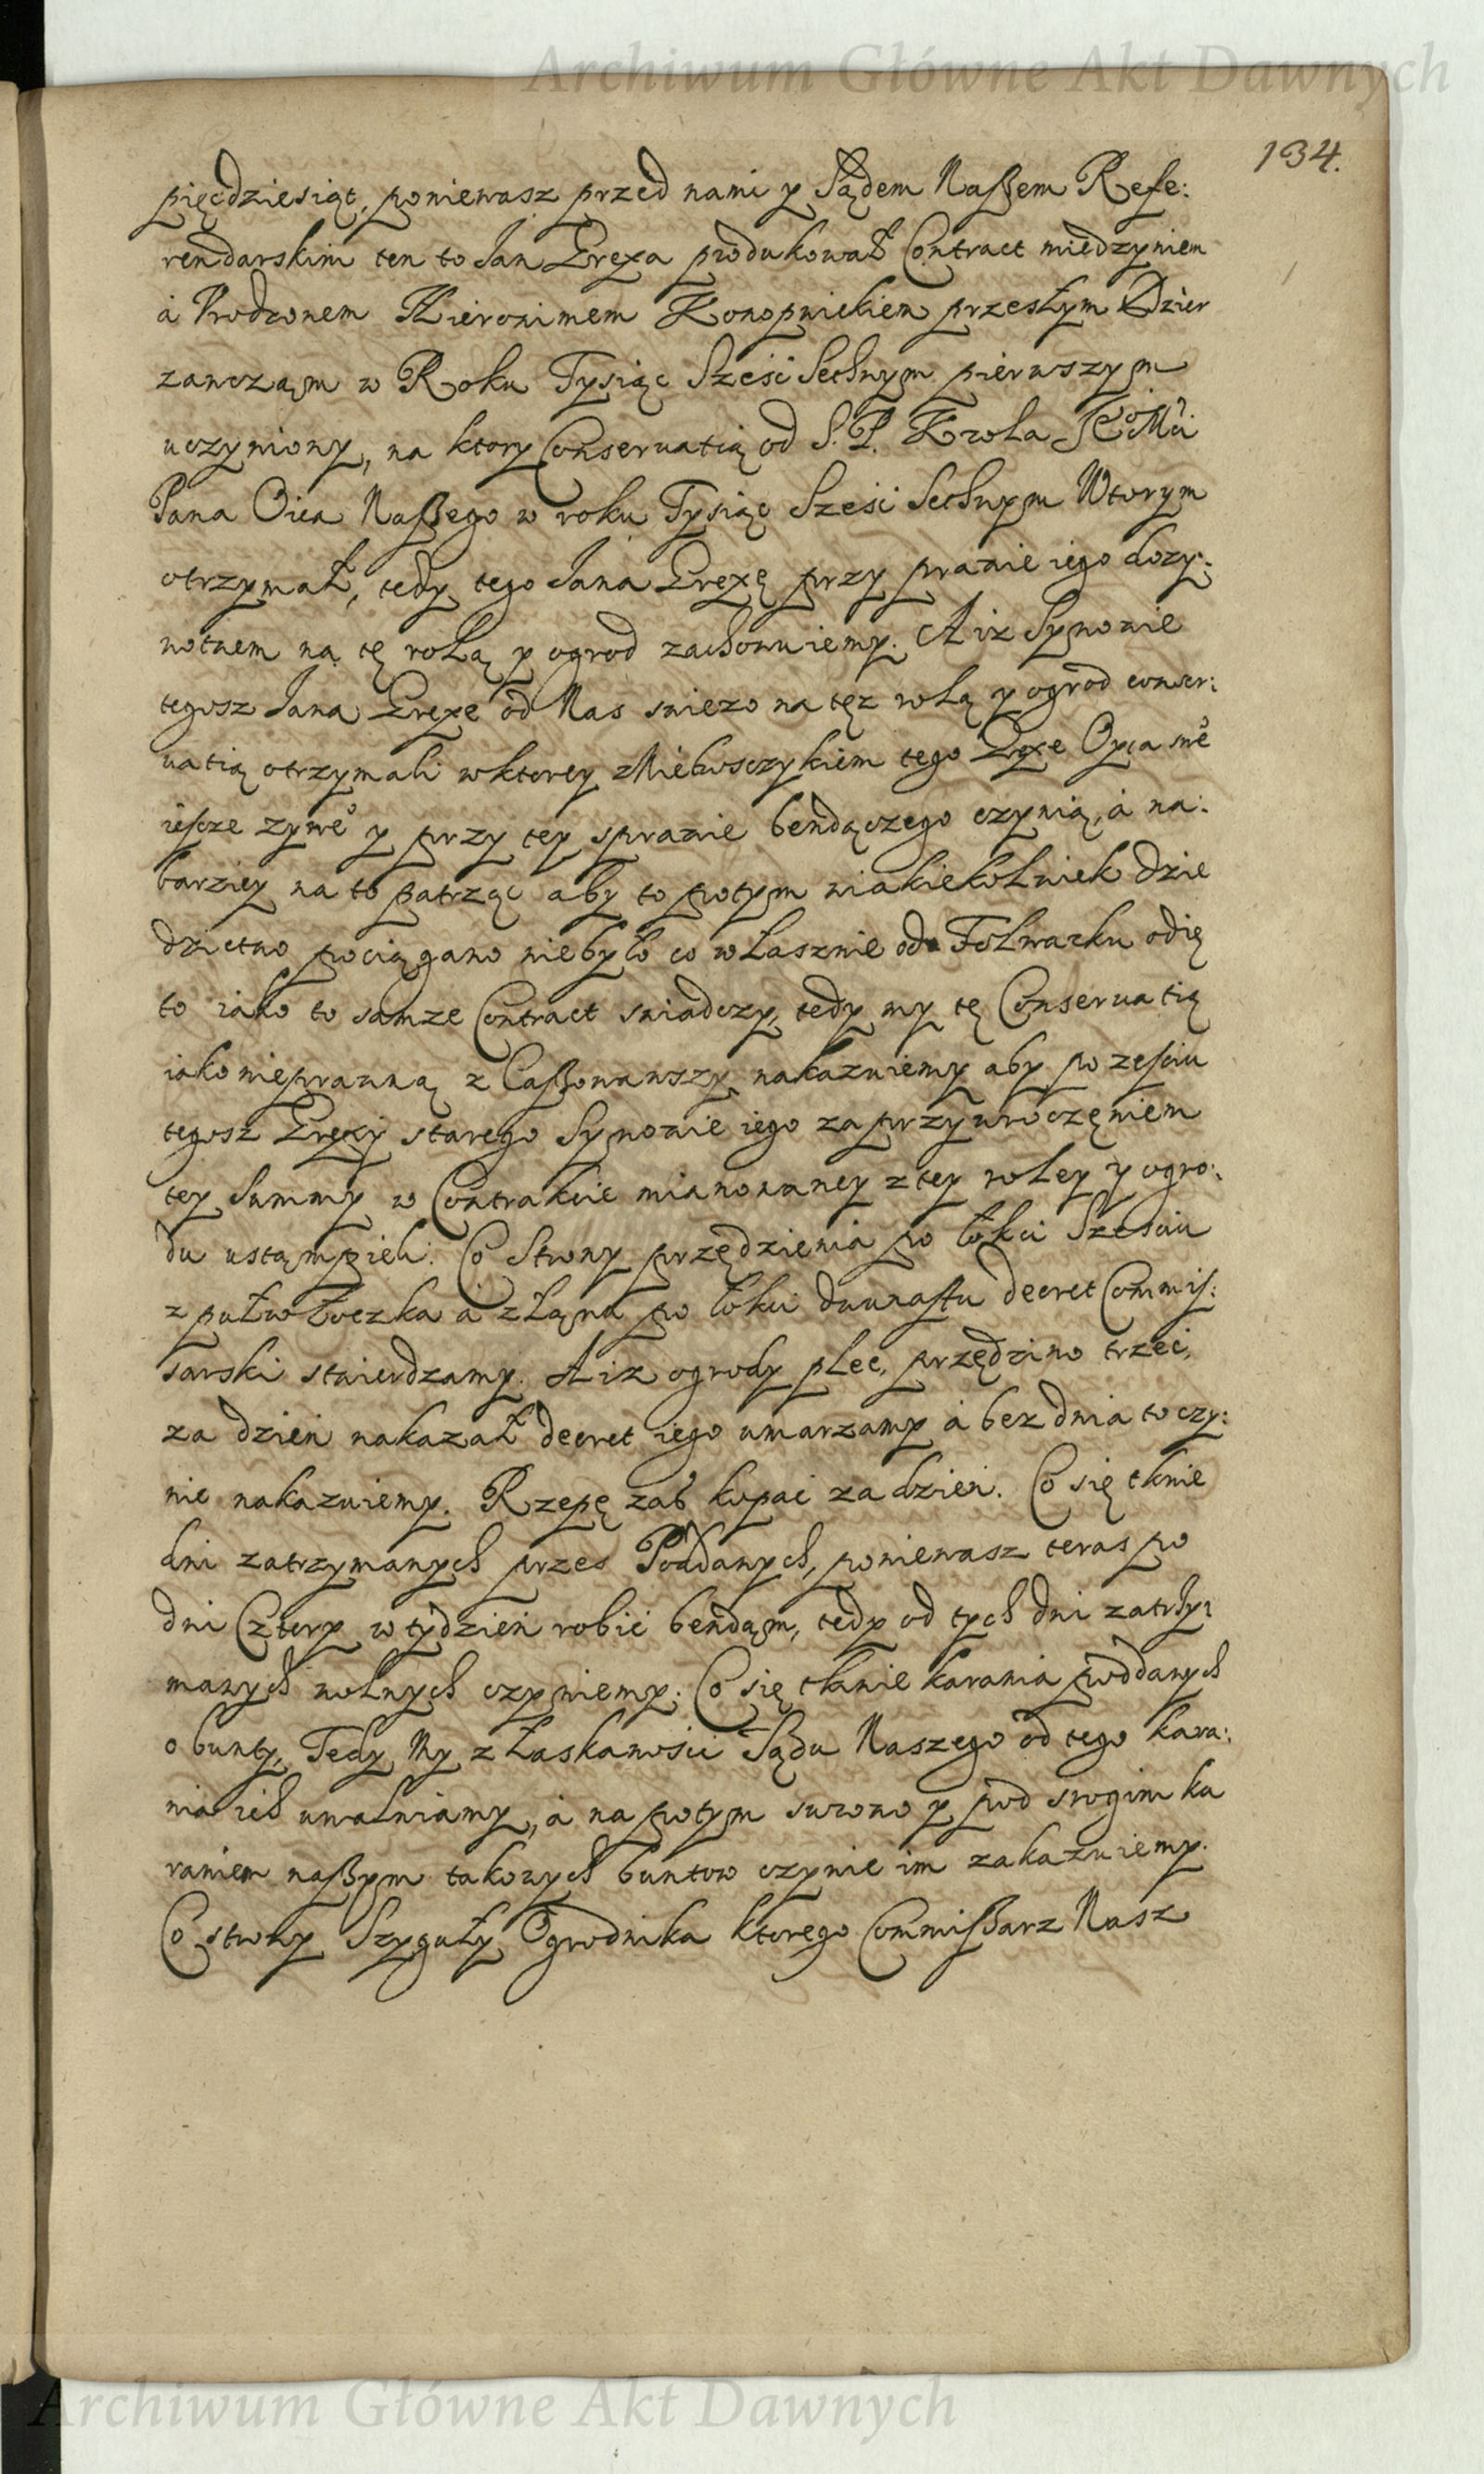 Archiwum Główne Akt Dawnych
134.
pięcdziesiąt, poniewasz przed nami y Sądem Naßem Refe:
rendarskim ten to Jan Grexa produkował Contract miedzyniem
á Urodzonem Hieronimem Konopnickiem przeszłym Dzier
zawcząm w Roku Tysiąc Sześć Setnym pierwszym
uczyniony, na ktory Conseruatią od S. P. Krola JeoMci
Pana Oica Naßego w roku Tysiąc Sześć Setnym Wtorym
otrzymał, tedy tego Jana Grexę przy prawie iego dozy:
wotnem na tę rolą y ogrod zachowuiemy. A iz Synowie
tegosz Jana Grexe od Nas swiezo na tęz rolą y ogrod conser:
uatią otrzymali wktorey zNiebosczykiem tego Grexe Oyca swe
iescze zywe y przy tey sprawie bendączego czynią, á na:
barziey na to patrząc aby to potym wiakiekolwiek dzie
dzictwo pociągano niebyło co własznie od Folwarku odię
to iako to samze Contract swiadczy, tedy my tę Conseruatią
iako nieprawną z Caßowawszy nakazuiemy aby po zesciu
tegosz Grexy starego Synowie iego za przywroczęniem
tey Summy w Contrakcie mianowaney z tey roley y ogro:
du ustąmpieli. Co Strony przędzienia po łokci Szesciu
z pułwłoczka á z Łąna po łokci dwunastu decret Commis:
sarski stwierdzamy. A iz ogrody plec, przędziwo trzeć,
za dzien nakazał decret iego umarzamy á bez dnia to czy:
nic nakazuiemy. Rzepę zaś kopać za dzień. Co się tknie
dni zatrzymanych przes Poddanych, poniewasz teras po
dni Cztery w tydzień robić bendąm, tedy od tych dni zatrzy:
manych wolnych czyniemy. Co się tknie karania poddanych
o bunty, Tedy My z Łaskawosci Sądu Naszego od tego kara:
nia ich uwalniamy, á na potym surowo y pod srogim ka
raniem naßym takowych buntow czynic im zakazuiemy.
Co strony Szyguły Ogrodnika ktorego Commißarz Nasz
Archiwum Główne Akt Dawnych